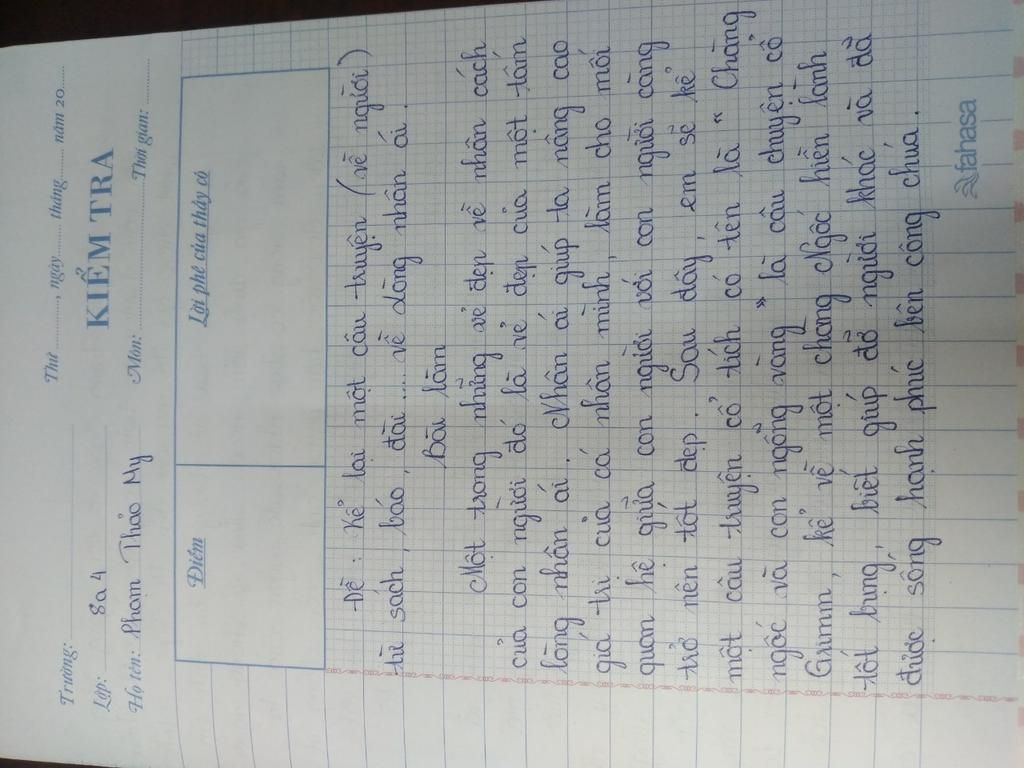 Trường:
Thứ ............, ngày......... tháng......... năm 20......
Lớp: 8a4
KIỂM TRA
Họ tên: Phạm Thảo My
Môn: ........................Thời gian: ............
Điểm
Lời phê của thầy cô
Đề : Kể lại một câu truyện (về người)
từ sách, báo, đài.... về lòng nhân ái.
Bài làm
Một trong những vẻ đẹp về nhân cách
của con người đó là vẻ đẹp của một tấm
lòng nhân ái. Nhân ái giúp ta nâng cao
giá trị của cá nhân mình, làm cho mối
quan hệ giữa con người với con người càng
trở nên tốt đẹp. Sau đây, em sẽ kể
một câu truyện cổ tích có tên là " Chàng
ngốc và con ngỗng vàng " là câu chuyện cổ
Grimm, kể về một chàng Ngốc hiền lành
tốt bụng, biết giúp đỡ người khác và đã
được sống hạnh phúc bên công chúa.
fahasa